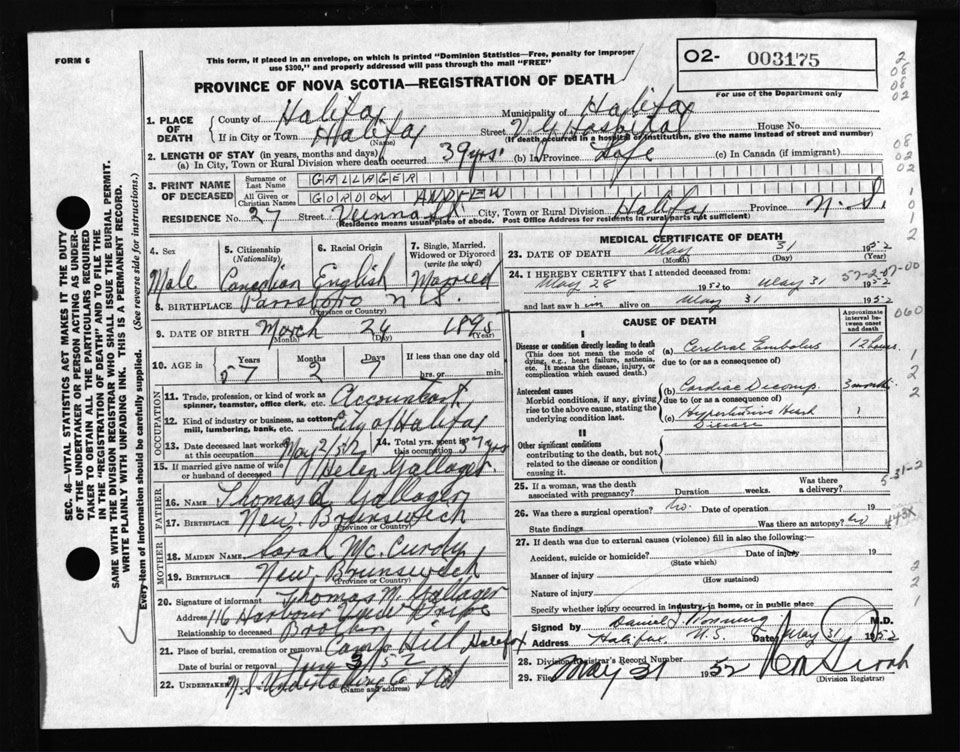 FORM 6
This form, if placed in an envelope, on which is printed "Dominion Statistics—Free, penalty for improper
use $300," and properly addressed will pass through the mail "FREE"
PROVINCE OF NOVA SCOTIA—REGISTRATION OF DEATH
O2- 003175
For use of the Department only
1. PLACE OF DEATH
County of Halifax Municipality of Halifax
If in City or Town Halifax Street V.G. Hospital House No.
(Name) (If death occurred in a hospital or institution, give the name instead of street and number)
2. LENGTH OF STAY (in years, months and days)
(a) In City, Town or Rural Division where death occurred 39 yrs. (b) In Province Life (c) In Canada (if immigrant)
3. PRINT NAME OF DECEASED
Surname or Last Name GALLAGER
All Given or Christian Names GORDON ANDREW
RESIDENCE No. 27 Street Vienna St City, Town or Rural Division Halifax Province N.S.
(Residence means usual place of abode. Post Office Address for residents in rural parts not sufficient)
4. Sex Male
5. Citizenship (Nationality) Canadian
6. Racial Origin English
7. Single, Married, Widowed or Divorced (write the word) Married
8. BIRTHPLACE Parrsboro N.S.
(Province or Country)
9. DATE OF BIRTH March 24 1895
(Month) (Day) (Year)
10. AGE in Years Months Days If less than one day old
57 2 7 hrs. or min.
OCCUPATION
11. Trade, profession, or kind of work as spinner, teamster, office clerk, etc. Accountant
12. Kind of industry or business, as cotton mill, lumbering, bank, etc. City of Halifax
13. Date deceased last worked at this occupation May 2/52 14. Total yrs. spent in this occupation 37 yrs
15. If married give name of wife or husband of deceased Helen Gallager
FATHER
16. NAME Thomas A Gallager
17. BIRTHPLACE New Brunswick
(Province or Country)
MOTHER
18. MAIDEN NAME Sarah McCurdy
19. BIRTHPLACE New Brunswick
(Province or Country)
20. Signature of informant Thomas M. Gallager
Address 116 Harbour View Drive
Relationship to deceased Brother
21. Place of burial, cremation or removal Camp Hill Halifax
Date of burial or removal June 3/52
22. UNDERTAKER N.S. Undertaking Co Ltd
(Name and address)
MEDICAL CERTIFICATE OF DEATH
23. DATE OF DEATH May 31 1952
(Month) (Day) (Year)
24. I HEREBY CERTIFY that I attended deceased from:
May 28 1952 to May 31 1952
and last saw him alive on May 31 1952
57-2-07-00
CAUSE OF DEATH
Approximate interval between onset and death
I
Disease or condition directly leading to death (a) Cerebral Embolus 12 hours
(This does not mean the mode of dying, e.g., heart failure, asthenia, etc. It means the disease, injury, or complication which caused death.)
due to (or as a consequence of)
Antecedent causes (b) Cardiac Decomp. 3 months
Morbid conditions, if any, giving rise to the above cause, stating the underlying condition last.
due to (or as a consequence of)
(c) Hypertensive Heart Disease
II
Other significant conditions
contributing to the death, but not related to the disease or condition causing it.
25. If a woman, was the death associated with pregnancy? Duration weeks. Was there a delivery?
5-31-2
26. Was there a surgical operation? No. Date of operation 19
State findings Was there an autopsy? No
443X
27. If death was due to external causes (violence) fill in also the following:—
Accident, suicide or homicide? Date of injury 19
(State which)
Manner of injury
(How sustained)
Nature of injury
Specify whether injury occurred in industry, in home, or in public place
Signed by Daniel J. M.D.
Address Halifax N.S. Date May 31 1952
28. Division Registrar's Record Number
29. Filed May 31 1952
(Division Registrar)
SEC. 46—VITAL STATISTICS ACT MAKES IT THE DUTY
OF THE UNDERTAKER OR PERSON ACTING AS UNDER-
TAKER TO OBTAIN ALL THE PARTICULARS REQUIRED
IN THE "REGISTRATION OF DEATH" AND TO FILE THE
SAME WITH THE DIVISION REGISTRAR WHO SHALL ISSUE THE BURIAL PERMIT.
WRITE PLAINLY WITH UNFADING INK. THIS IS A PERMANENT RECORD.
Every item of Information should be carefully supplied. (See reverse side for instructions.)
2
08
08
02
08
02
02
1
0
1
2
060
1
2
2
2
2
1